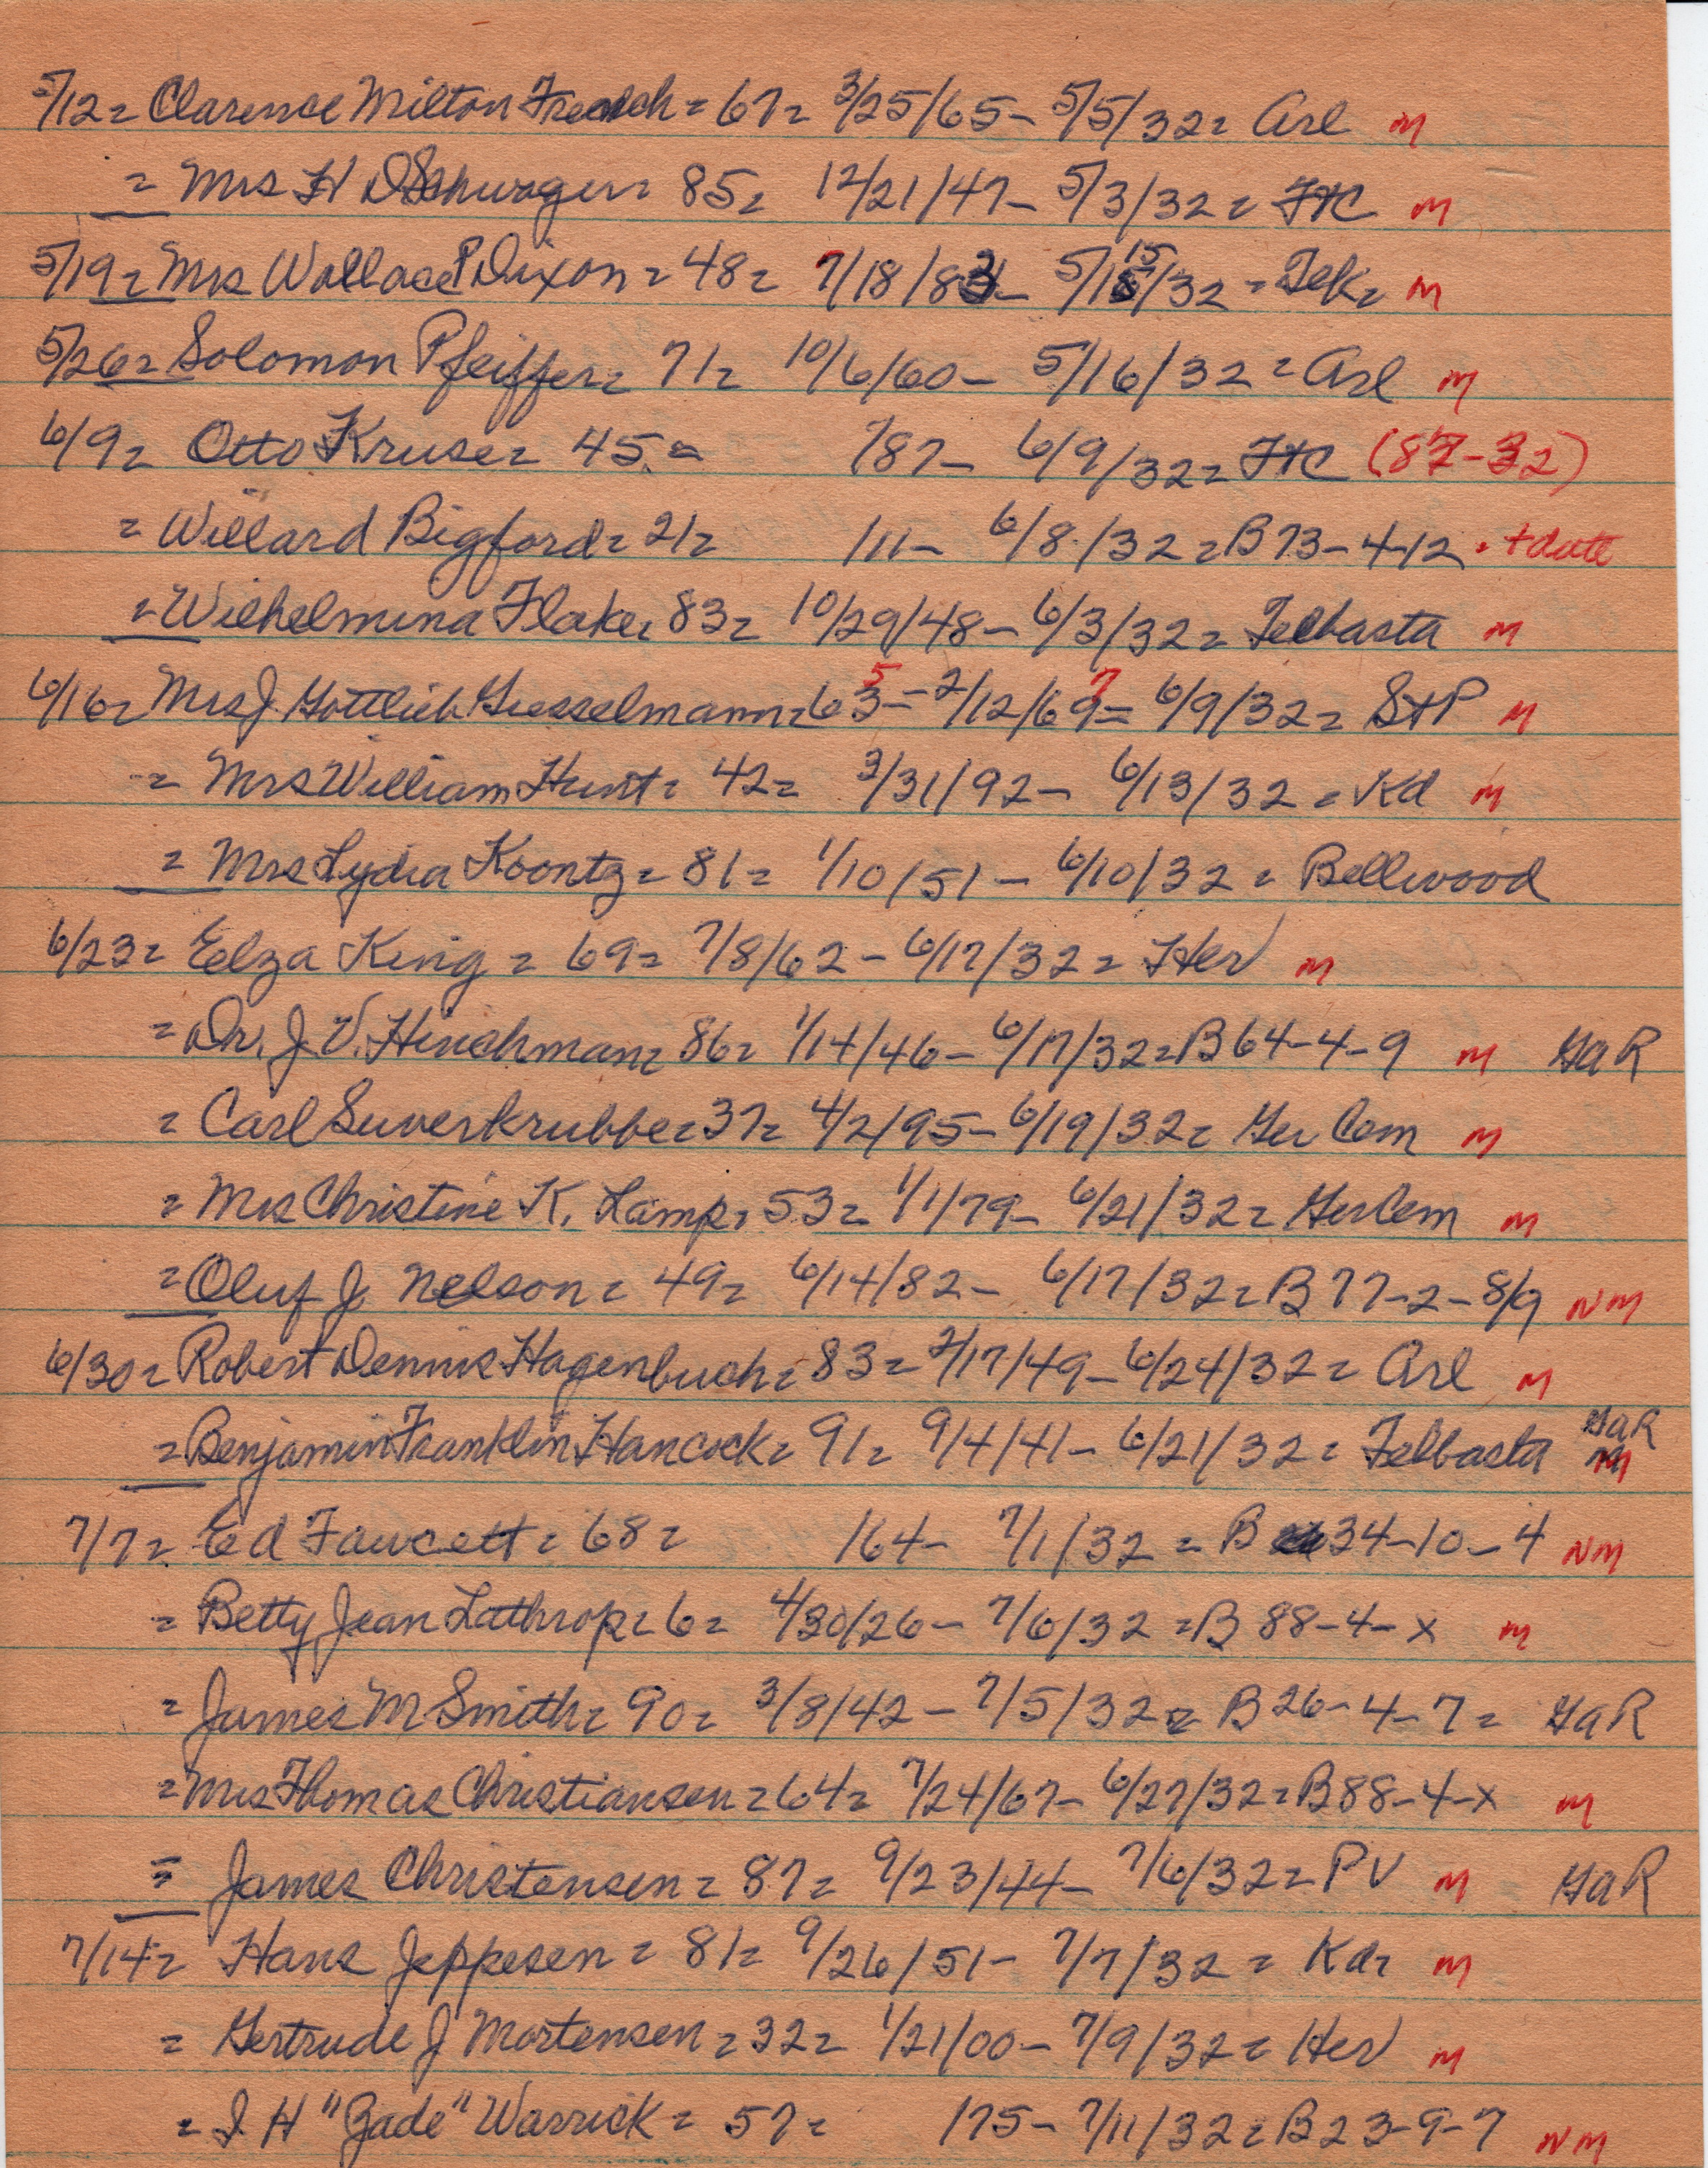 5/12 = Clarence Milton French = 67 = 3/25/65 – 5/5/32 = Arl m
= Mrs H D Schwager = 85 = 12/21/47 – 5/3/32 = FtC m
5/19 = Mrs Wallace P Dixon = 48 = 7/18/83 – 5/15/32 = Tek = m
5/26 = Solomon Pfeiffer = 71 = 10/6/60 – 5/16/32 = Arl m
6/9 = Otto Kruse = 45 = /87 – 6/9/32 = FtC (87-32)
= Willard Bigford = 21 = /11 – 6/8/32 = B 73-4-12 . + date
= Wilhelmina Flake = 83 = 10/29/48 – 6/3/32 = Telbasta m
6/16 = Mrs J. Gottlieb Giesselmann = 63 5 – 2/12/69 7 = 6/9/32 = StP m
= Mrs William Hunt = 42 = 3/31/92 – 6/13/32 = Kd m
= Mrs Lydia Koontz = 81 = 1/10/51 – 6/10/32 = Bellwood
6/23 = Elza King = 69 = 7/8/62 – 6/17/32 = Her m
= Dr. J. V. Hinchman = 86 = 1/14/46 – 6/17/32 = B 64-4-9 m GaR
= Carl Suverkrubbe = 37 = 4/2/95 – 6/19/32 = Ger Cem m
= Mrs Christine K. Kamp = 53 = 1/1/79 – 6/21/32 = Ger Cem m
= Oluf J. Nelson = 49 = 6/14/82 – 6/17/32 = B 77-2-8/9 NM
6/30 = Robert Dennis Hagenbuch = 83 = 2/17/49 – 6/24/32 = Arl m
= Benjamin Franklin Hancock = 91 = 9/4/41 – 6/21/32 = Telbasta GaR m
7/7 = Ed Fawcett = 68 = /64 – 7/1/32 = B 34-10-4 NM
= Betty Jean Lathrop = 6 = 4/30/26 – 7/6/32 = B 88-4-x m
= James M Smith = 90 = 3/8/42 – 7/5/32 = B 26-4-7 = GaR
= Mrs Thomas Christiansen = 64 = 7/24/67 – 6/27/32 = B 88-4-x m
= James Christensen = 87 = 9/23/44 – 7/6/32 = PV m GaR
7/14 = Hans Jeppesen = 81 = 9/26/51 – 7/7/32 = Kd = m
= Gertrude J Mortensen = 32 = 1/21/00 – 7/9/32 = Her m
= I H "Zade" Warrick = 57 = /75 – 7/11/32 = B 23-9-7 NM